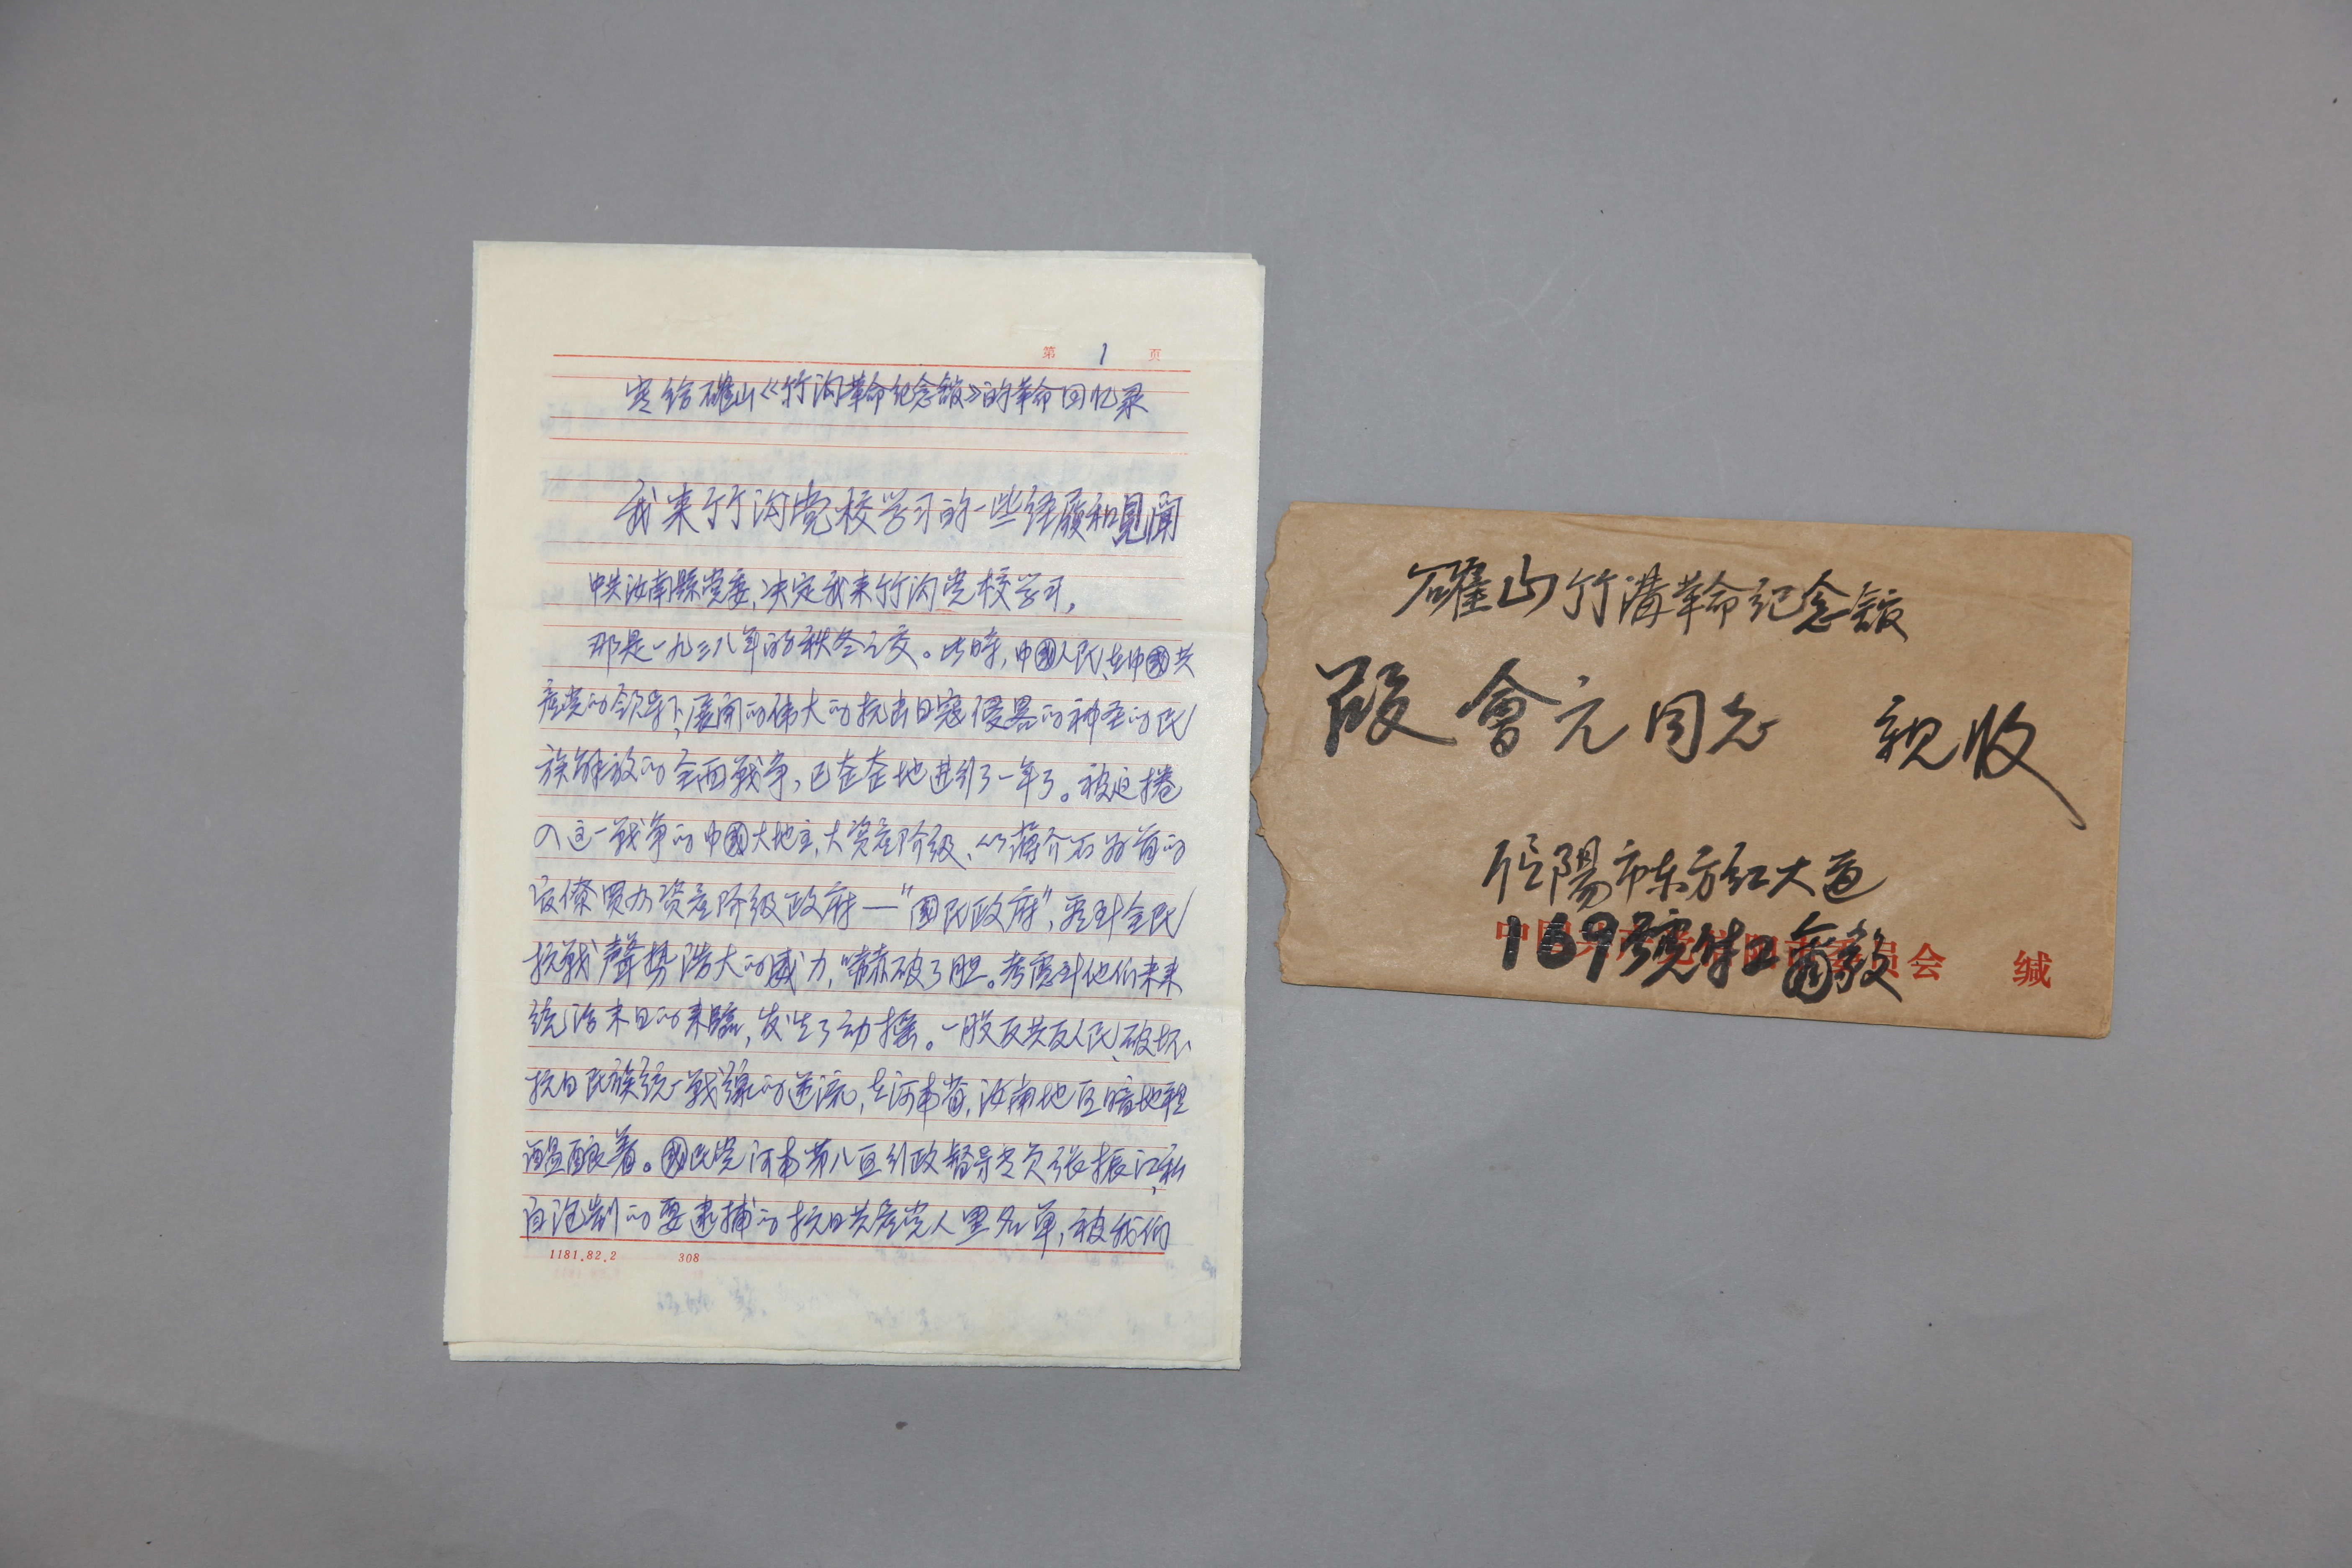 第 1 页
写给确山《竹沟革命纪念馆》的革命回忆录
我来竹沟党校学习的一些经历和見闻
中共汝南縣党委、决定我来竹沟党校学习。
那是一九三八年的秋冬之交。此時,中國人民、在中國共
产党的领导下、展开的伟大的抗击日寇侵畧的神圣的民
族解放的全面戰争,已在在地进行了一年了。被迫捲
入这一戰争的中國大地主、大资产阶级、以蒋介石为首的
官僚買办资产阶级政府—"國民政府",看到全民
抗戰聲势浩大的威力,嚇破了胆。考慮到他们未来
统治末日的来臨,发生了动摇。一股反共反人民、破坏
抗日民族统一戰線的逆流,在河南省,汝南地区暗地裡
醖酿着。國民党河南第八区行政督导专员张振江,私
自泡制的要逮捕的抗日共产党人黑名单,被我们
1181.82.2 308
確山竹溝革命纪念馆
段會元同志 親收
信陽市东方红大道
169號
中国共产党信阳市委员会 缄